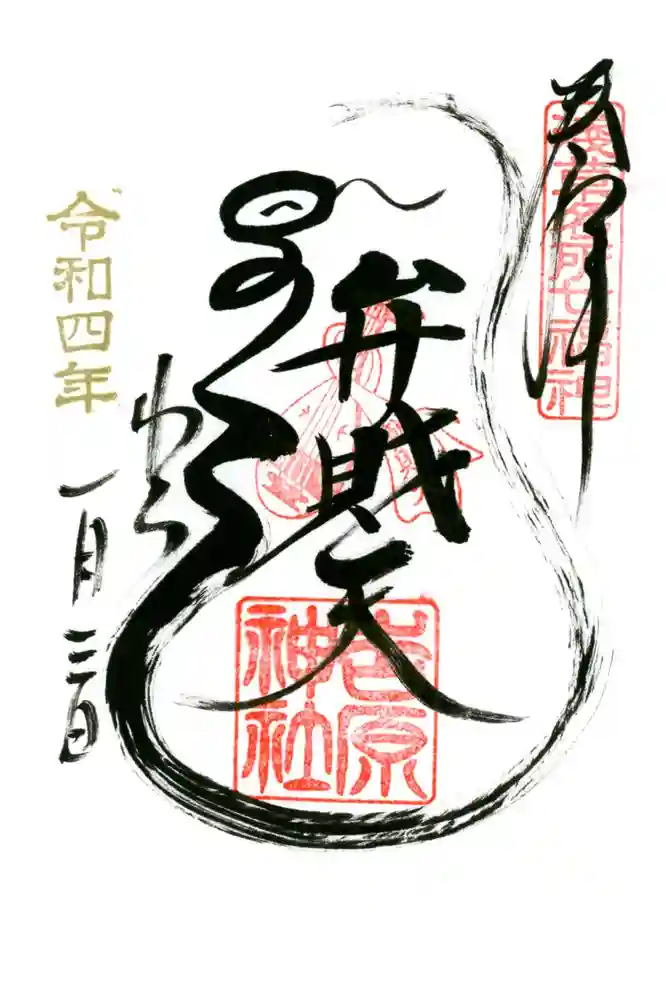 奉拝
淺草名所七福神
弁財天
吉原神社
令和四年
一月三日